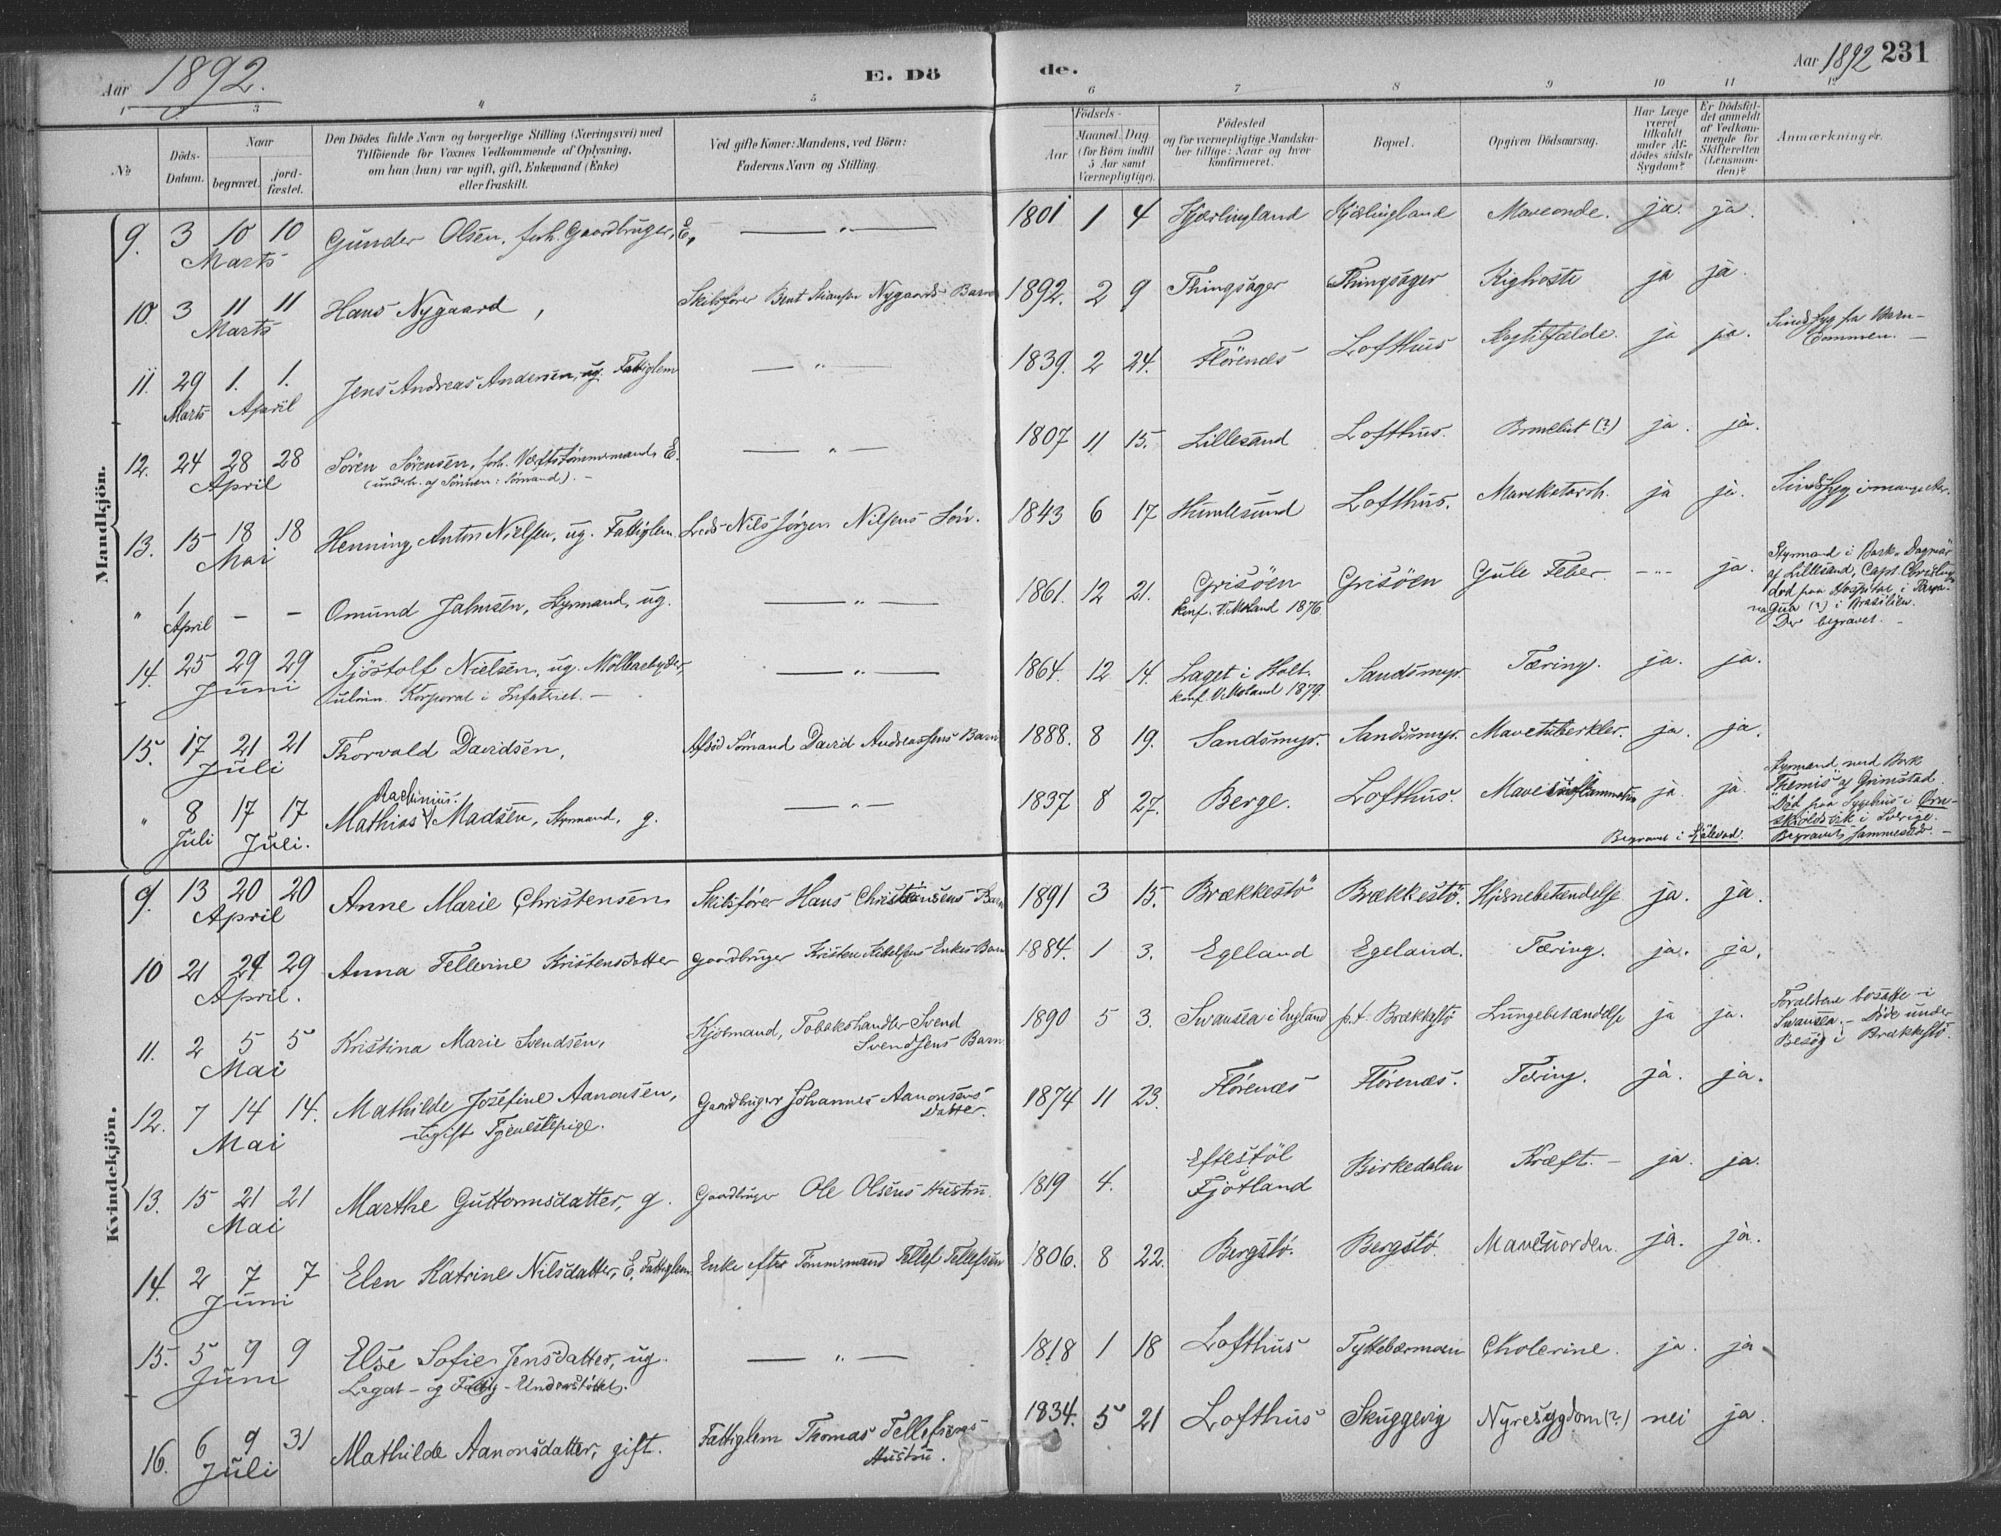 Aar 1892.
E. Dö
de.
Aar 1892 231
1 2 3 4 5 6 7 8 9 10 11 12
№
Döds-Datum.
Naar
begravet.
jord-fæstet.
Den Dödes fulde Navn og borgerlige Stilling (Næringsvei) med
Tilföiende for Voxnes Vedkommende af Oplysning,
om han (hun) var ugift, gift, Enkemand (Enke)
eller fraskilt.
Ved gifte Koner: Mandens, ved Börn:
Faderens Navn og Stilling.
Födsels-
Aar
Maaned Dag
(for Börn indtil
5 Aar samt
Værnepligtige).
Födested
og for værnepligtige Mandska-
ber tillige: Naar og hvor
konfirmeret.
Bopæl.
Opgiven Dödsaarsag.
Har Læge
været
tilkaldt
under Af-
dödes sidste
Sygdom?
Er Dödsfal-
det anmeldt
af Vedkom-
mende for
Skifteretten
(Lensman-
den)?
Anmærkninger.
Mandkjön.
9. 3 10 10 Marts Gunder Olsen, forh. Gaardbruger, E. — " — 1801 1 4 Kjærlingland Kjærlingland Maveonde. ja. ja.
10. 3 11 11 Marts Hans Nygaard, Skibsfører Bent Nygaards Barn 1892. 2 9 Thingsager Thingsager Kighoste ja ja.
11. 29 Marts 1. 1. April Jens Andreas Andersen, ug. Fattiglem — " — 1839. 2 24. Flörenæs Lofthus ja ja. Sindssyg fra Barn-
dommen. —
12. 24 28 28 April Sören Sörensen, forh. Værftstömmermand, E.
(underh. af Sönnen: Sömand). — — " — 1807 11 15. Lillesand Lofthus. (?) ja. ja.
13. 15 18 18 Mai Henning Anton Nielsen, ug. Fattiglem. Lods Nils Jörgen Nilsens Sön. 1843 6 17 Humlesund Lofthus. Mavekatarrh. ja ja. Sindssyg i mange Aar.
" 1 April — — Omund Jahnsen, Styrmand, ug. — " — 1861. 12 21. Grisöen
konf. V. Moland 1876 Grisöen Gule Feber. — " — ja. Styrmand i Bark "Dagmar"
af Lillesand, Capt.
död paa Hospital i Para-
nagua (?) i Brasilien.
Der begravet. —
14. 25 29 29 Juni Tjöstolf Nielsen, ug. Möllearbeider,
Korporal i Infanteriet. — — " — 1864. 12 14. Laget i Holt.
konf. V. Moland 1879. Sandsmyr. Tæring. ja. ja.
15. 17 21 21 Juli Thorvald Davidsen, Afdöd Sömand David Andreassens Barn 1888. 8 19. Sandsmyr. Sandsmyr. Mavetuberkler. ja. ja.
" 8 Juli 17 17 Juli. Mathias Madsen, Styrmand, g. — " — 1837 8 27. Berge. Lofthus. Maveinflammation ja. ja. Styrmand med Bark
"Themis" af Grimstad.
Död paa Sygehus i Örn-
sköldsvik i Sverige.
Begravet sammesteds. —
Begravet i Själevad.
Kvindekjön.
9. 13 20 20 April Anne Marie Christensen Skibsfører Hans Christensens Barn 1891 3 15. Brækkestö Brækkestö. Hjernebetændelse ja. ja.
10 21 29 29 April. Anna Tellevine Kristensdatter Gaardbruger Kristen Enkes Barn 1884. 1 3. Egeland Egeland. Tæring. ja. ja.
11. 2 5 5 Mai Kristina Marie Svendsen, Kjöbmand, Tobakshandler Svend
Svendsens Barn 1890 5 3. Swansea i England p.t. Brækkestö Lungebetændelse ja ja. Forældrene bosatte i
Swansea. — Döde under
Besög i Brækkestö.
12. 7 14 14. Mai Mathilde Josefine Aanonsen,
Ugift Tjenestepige. Gaardbruger Johannes Aanonsens
Datter. 1874 11 23. Flörenæs Flörenæs. Tæring. ja. ja.
13. 15 21 21 Mai Marthe Guttormsdatter, g. Gaardbruger Ole Olsens Hustru. 1819 4. Eftestöl
Fjotland Birkedalen Kræft. — ja. ja.
14. 2 7 7 Juni Elen Katrine Nilsdatter, E. Fattiglem. Enke efter Tömmermand Tellef Tellefsen 1806. 8 22. Bergstö. Bergstö. Maveuorden. ja. ja.
15. 5 9 9 Juni Else Sofie Jensdatter, ug.
Legat- og Fattig-Understöttet. — " — 1818 1 18 Lofthus Tyttebærmoen Cholerine. ja. ja.
16. 6 9 31 Juli Mathilde Aanonsdatter, gift. Fattiglem Thomas Tellefsens
Hustru. 1834. 5 21 Lofthus Skuggevig Nyresygdom(?) nei ja.